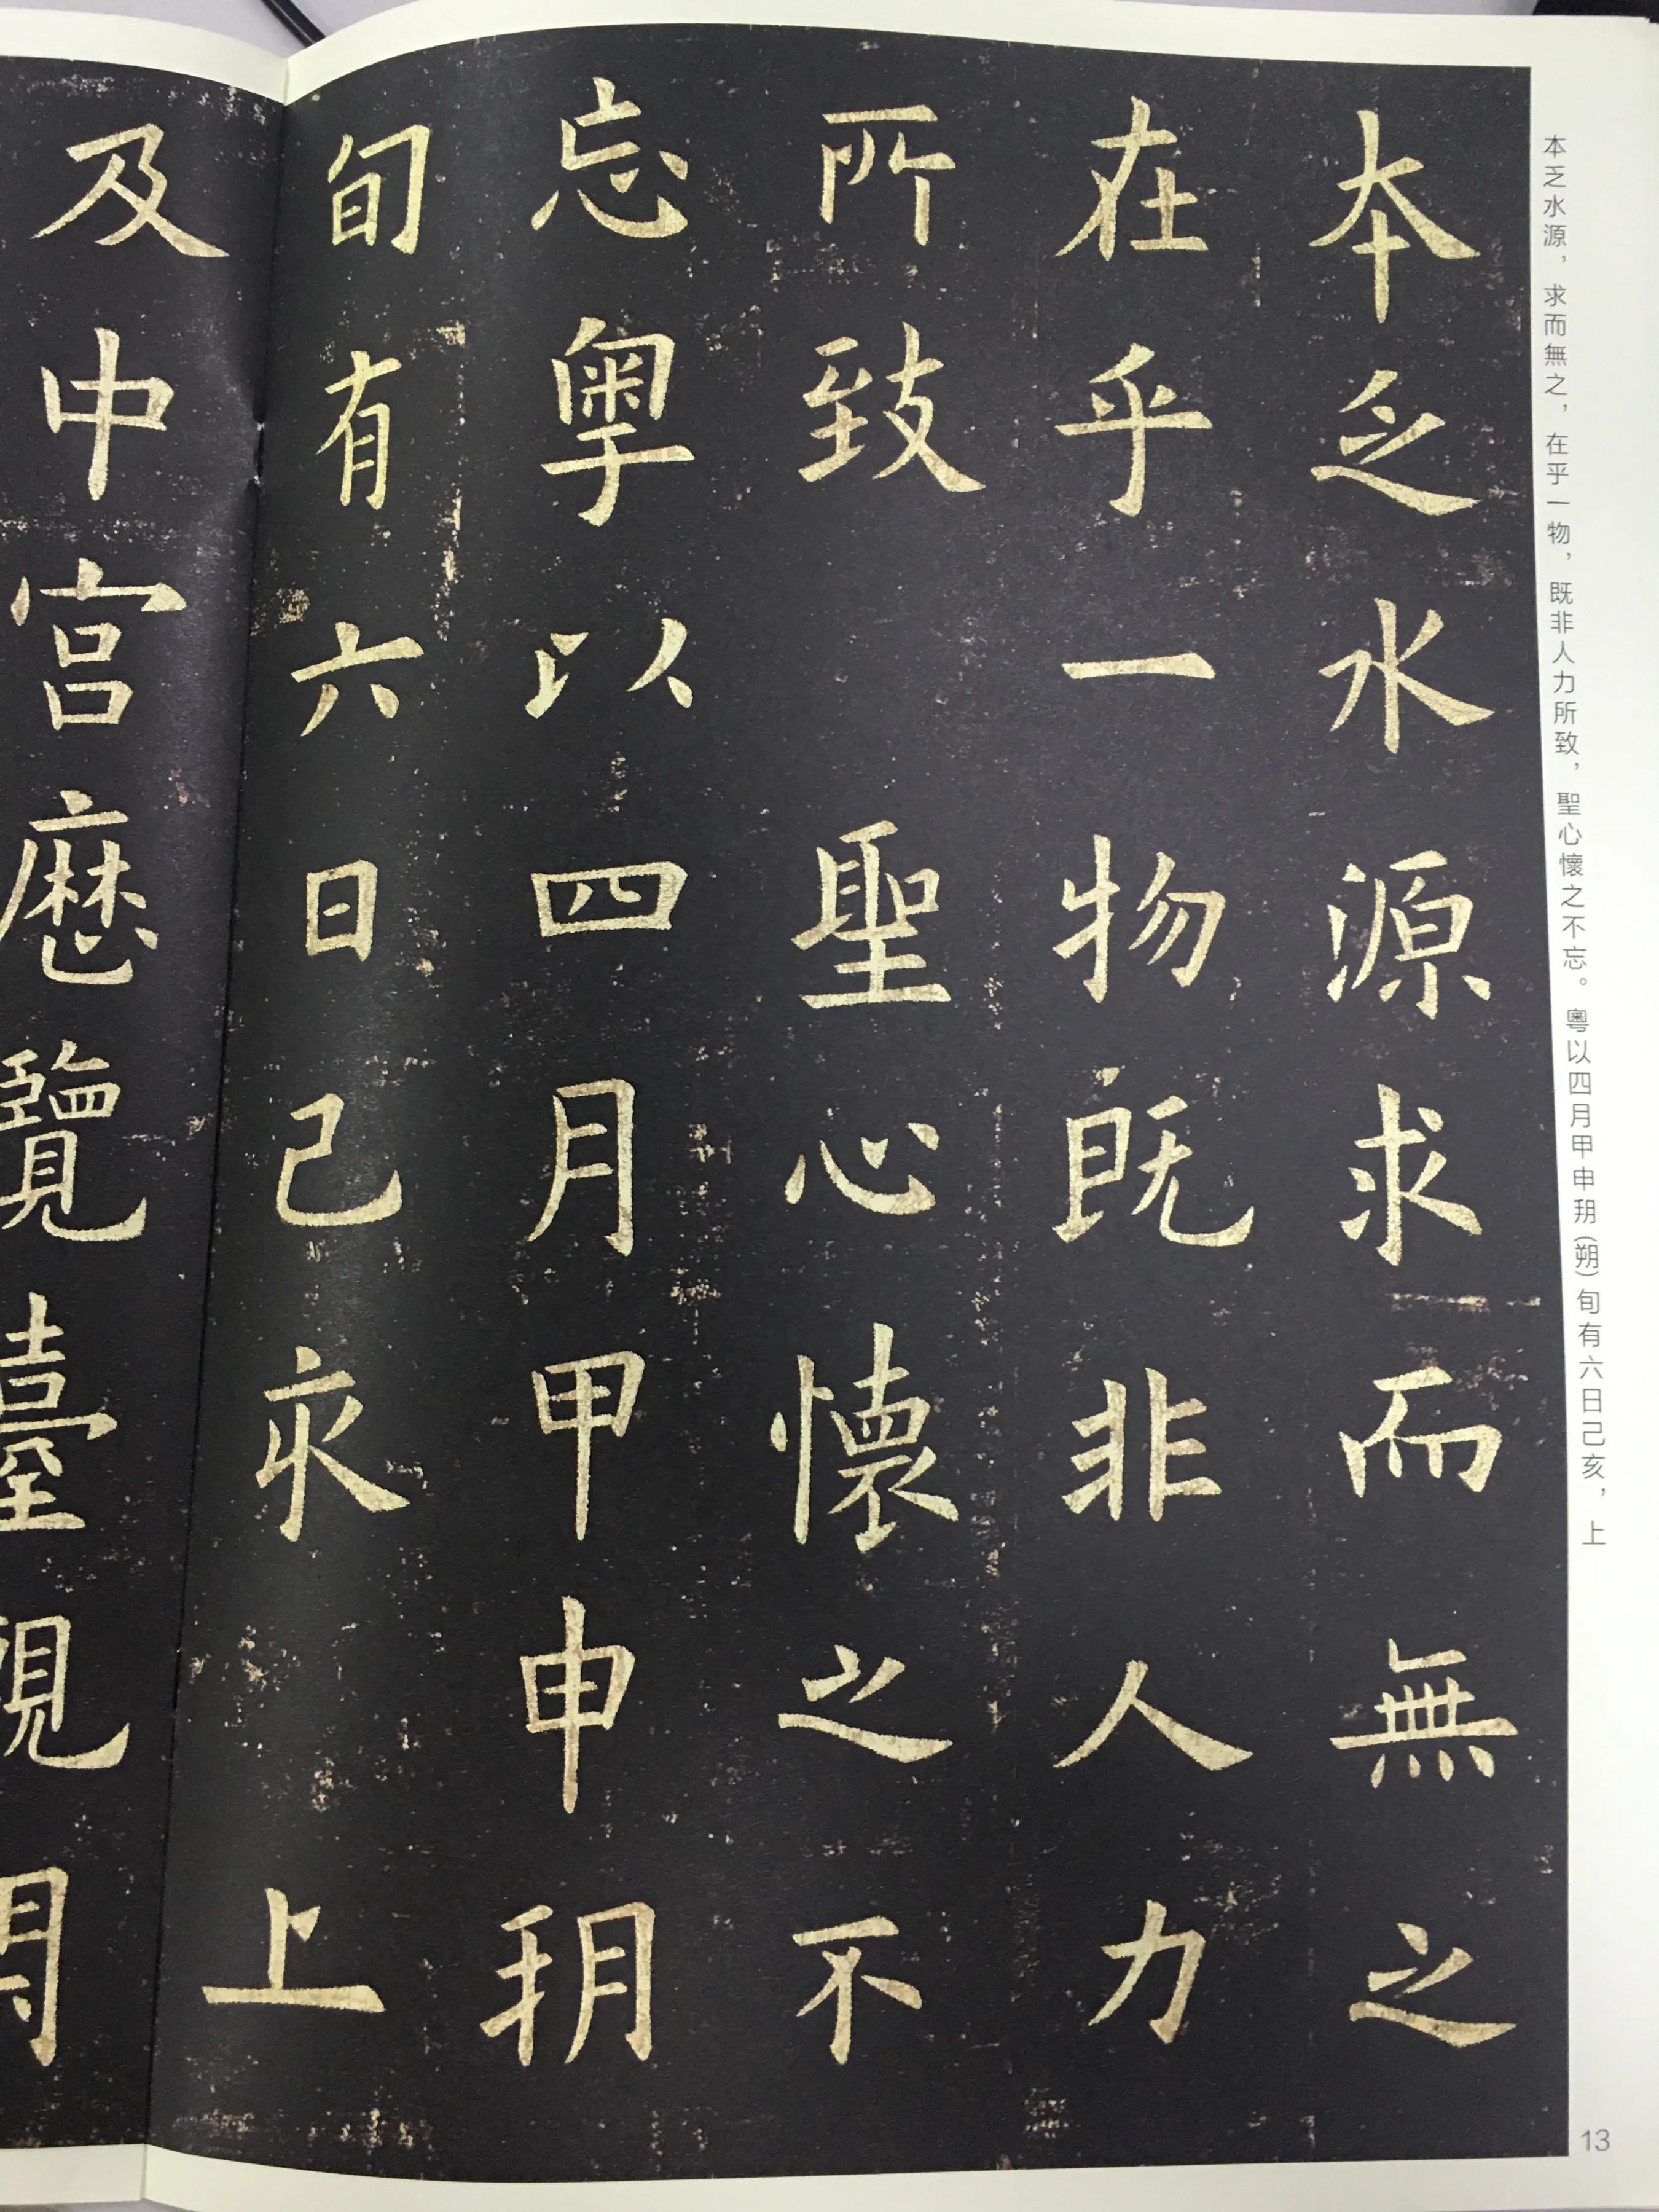 本乏水源求而無之
在乎一物既非人力
所致聖心懷之不
忘粵以四月甲申玥
旬有六日己亥上
及中宮歷覽臺觀閑
本乏水源，求而無之，在乎一物，既非人力所致，聖心懷之不忘。粵以四月甲申玥(朔)旬有六日己亥，上
13